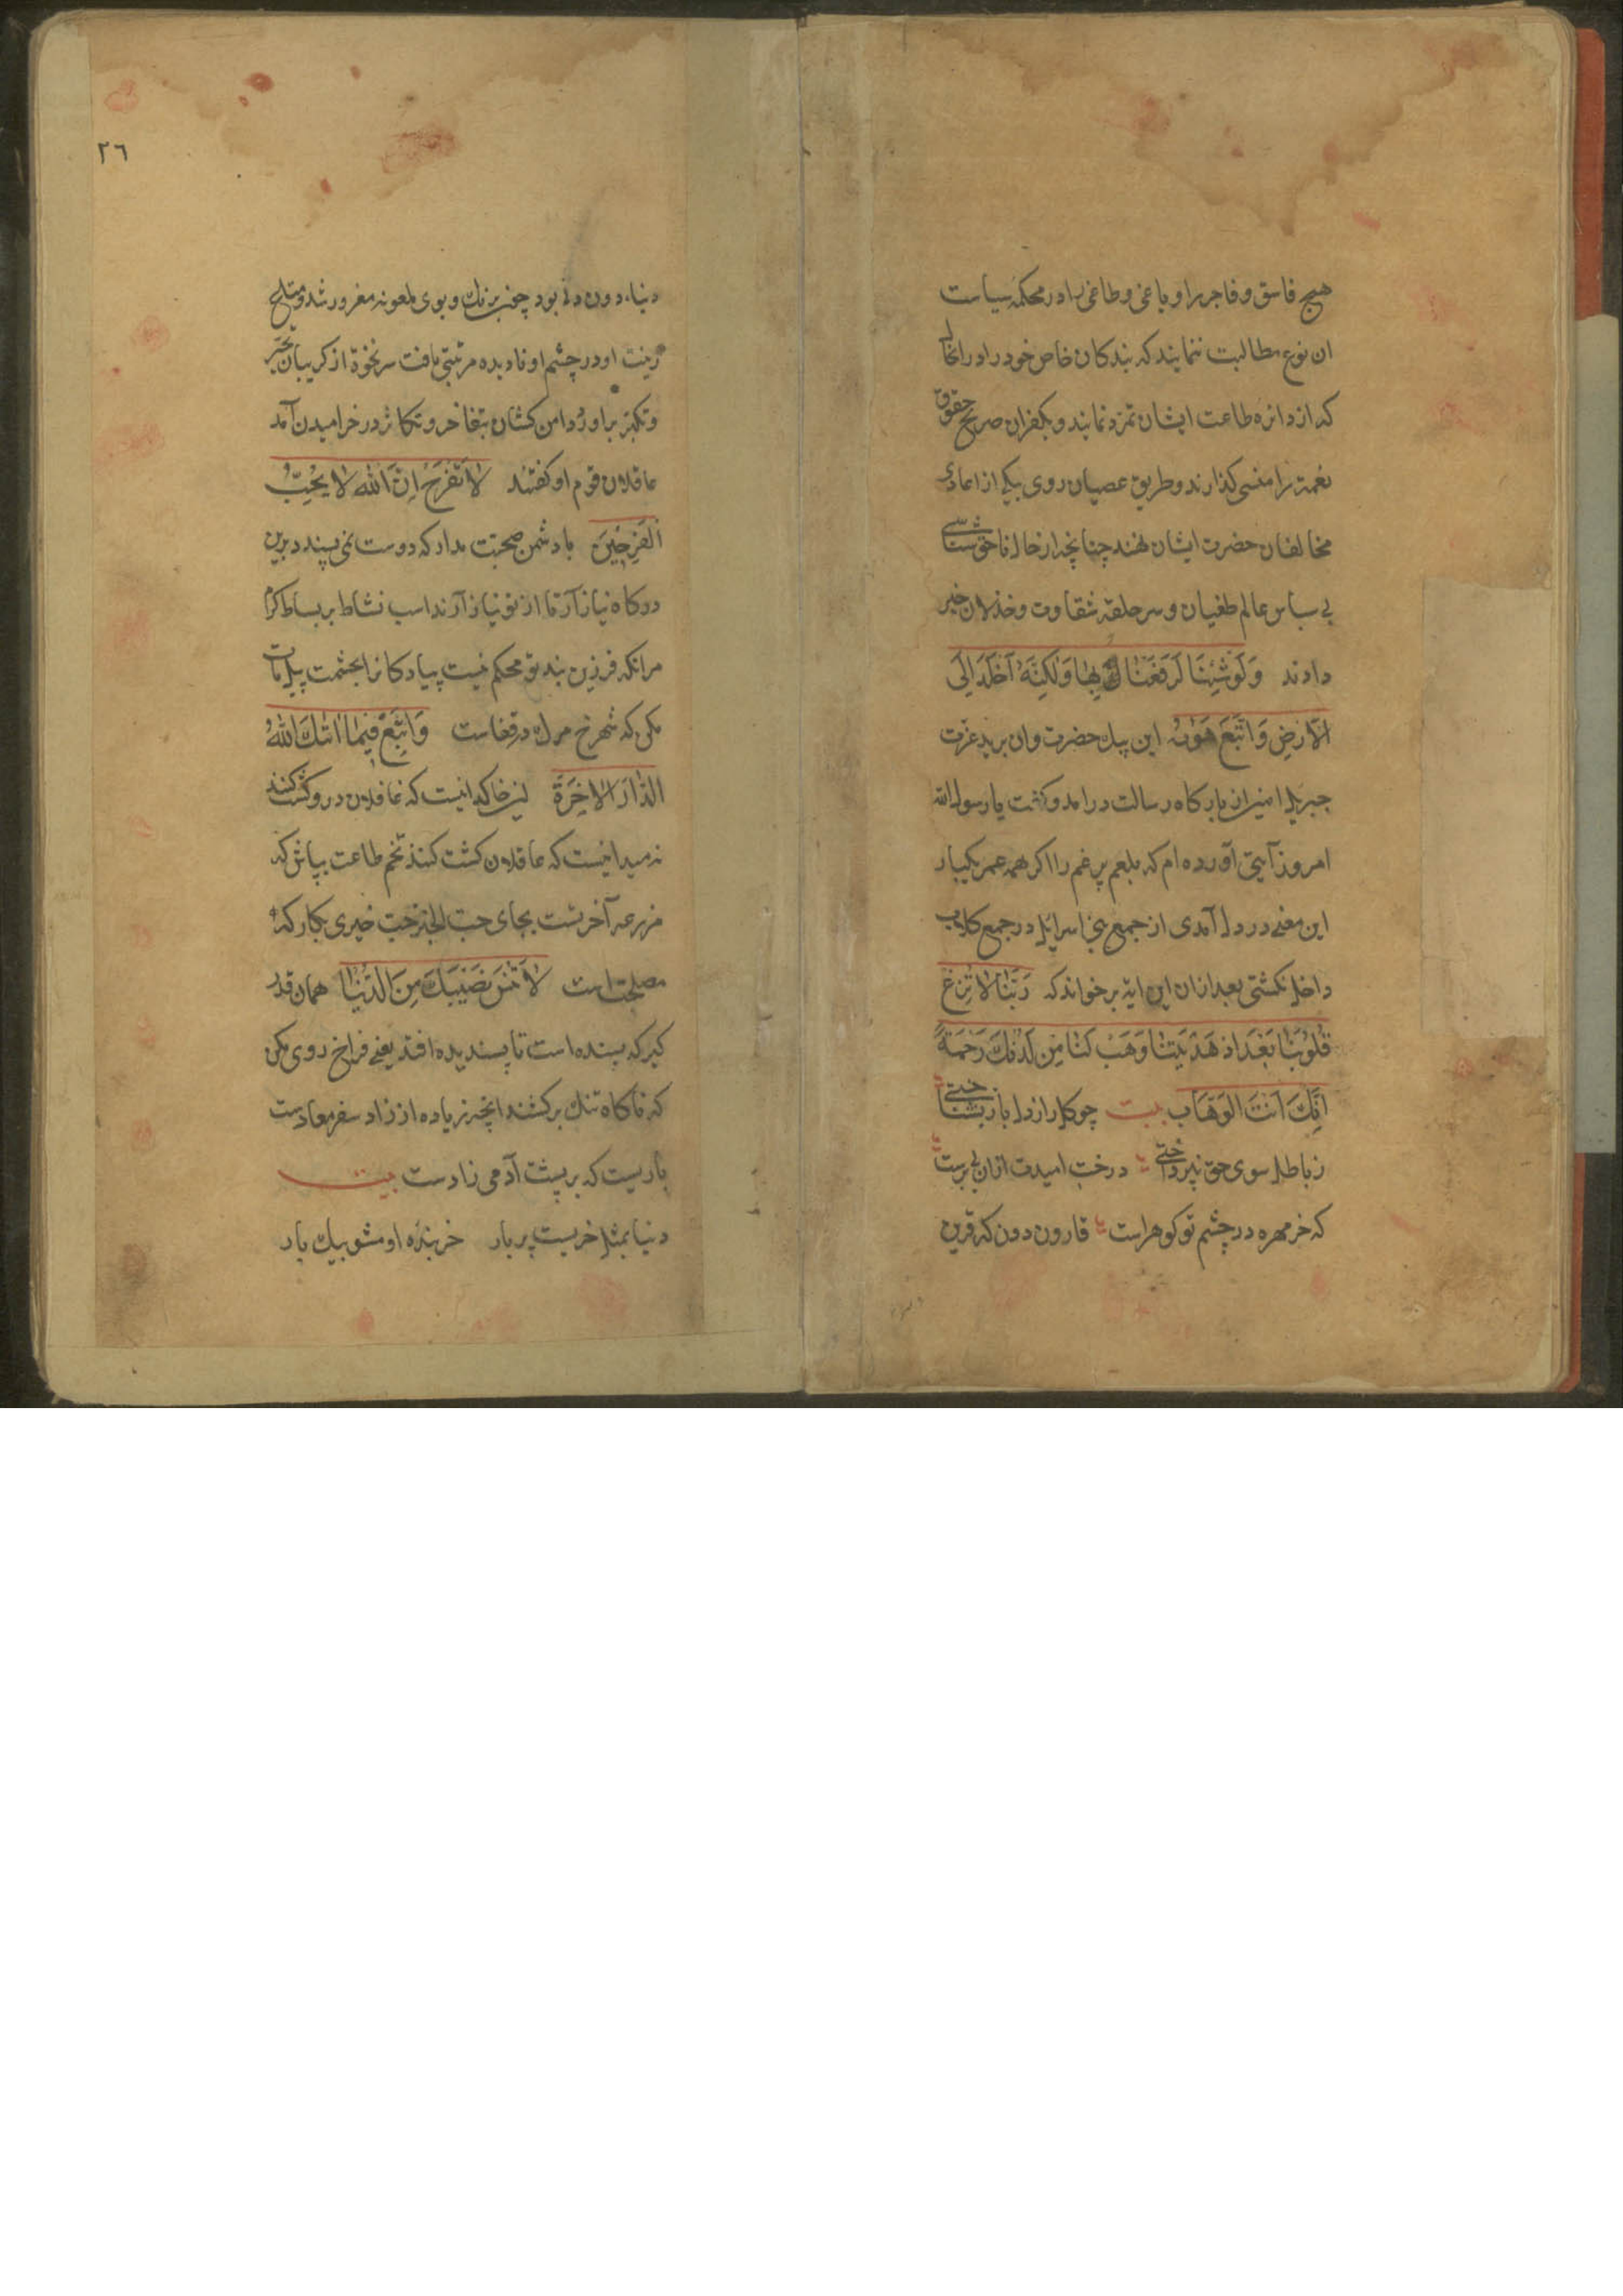 هیچ فاسق و فاجر را و یاغی و طاغی را در محکمهٔ سیاست
ان نوع مطالبت ننمایند که بندکان خاص خود را در انحال
که از دائره طاعت ایشان تمرد نمایند و بکفران صریح حقوق
نعمت را منسی کذارند و طریق عصیان روی بیکی از اعادی
مخالفان حضرت ایشان نهند چنانچه از حال ناحق شناسی
بی سپاس عالم طغیان و سر حلقه شقاوت و خذلان خبر
دادند وَلَوْ شِئْنَا لَرَفَعْنَاهُ بِهَا وَلٰكِنَّهُ اَخْلَدَ اِلَى
الْاَرْضِ وَاتَّبَعَ هَوٰیهُ این پیك حضرت وان برید عزت
جبریل امین ازان بارکاه رسالت درامد و کفت یا رسول الله
امروز آیتی آورده ام که بلعم پر غم را اکر همه عمر یکبار
این معنی در دل آمدی از جمیع بنی اسرائیل در جمع کلاب
داخل نکشتی بعد ازان این ایه برخواند که رَبَّنَا لَا تُزِغْ
قُلُوبَنَا بَعْدَ اِذْ هَدَيْتَنَا وَهَبْ لَنَا مِنْ لَدُنْكَ رَحْمَةً
اِنَّكَ اَنْتَ الْوَهَّاب بیت چو کل را ز دل باز نشناختی
ز باطل سوی حق نپرداختی درخت امیدت ازان بی برست
که خر مهره در چشم تو کوهر است قارون دون که قرین
٢٦
دنیاء دون دنی بود چون برنك و بوی ملعونه مغرور شد و متاع
زینت او در چشم او نادیده مرتبتی یافت سر نخوة از کریبان تجبر
و تکبر براورد و دامن کشان بتفاخر و تکاثر در خرامیدن آمد
عاقلان قوم او کفتند لَا تَفْرَحْ اِنَّ اللّٰهَ لَا يُحِبُّ
الْفَرِحِينَ با دشمن صحبت مدار که دوست نمی پسندد برین
درکاه نیاز آر تا از تو نیاز آرند اسب نشاط بر بساط کرم
مران که فرزین بند تو محکم نیست پیادکانرا بحشمت پیل مات
مکن که شهرخ مرك در قفاست وَابْتَغِ فِيمَا اٰتٰكَ اللّٰهُ
الدَّارَ الْاٰخِرَةَ این خاکدانیست که غافلان درو کشت کنند
نه میدانیست که عاقلان کشت کنند تخم طاعت بپاش که
مزرعه آخرتست بجای حب الخبز حب خیری بکار که
مصلحت است لَا تَنْسَ نَصِيبَكَ مِنَ الدُّنْيَا همان قدر
کیر که بسنده است تا پسندیده افتد یعنی فراخ روی مکن
که ناکاه تنك برکشند انچه زیاده از زاد سفر معادست
باریست که بر پشت آدمی زادست بیت
دنیا بمثل خریست پر بار خربنده او مشو بیك بار